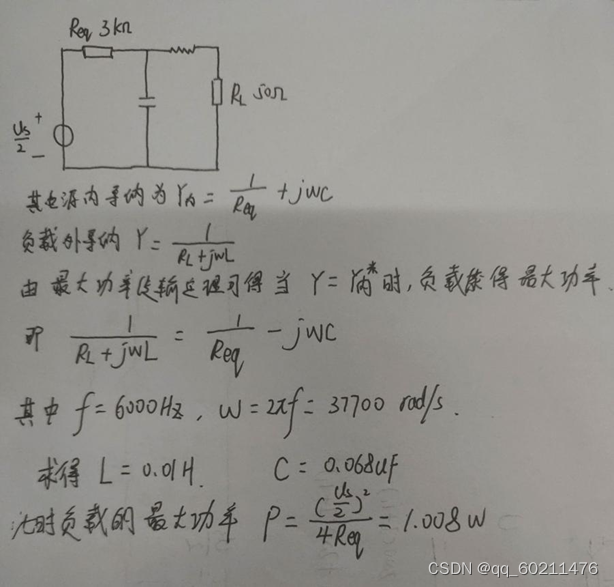 Req 3kΩ
RL 50Ω
Us/2
+
−
其电源内导纳为 Y内 = 1/Req + jwC
负载外导纳 Y = 1/(RL+jwL)
由最大功率传输定理可得当 Y = Y内* 时,负载能得最大功率.
即 1/(RL+jwL) = 1/Req − jwC
其中 f = 6000Hz, w = 2πf = 37700 rad/s.
求得 L = 0.01H. C = 0.068uF
此时负载的最大功率 P = (Us/2)²/4Req = 1.008w
CSDN @qq_60211476